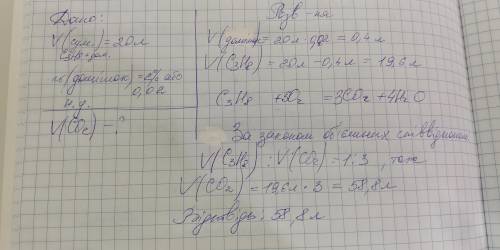 Дано:
V(сум.)=20л
C3H8+дом.
w(домішок)=2% або
0,02
н.у.
V(CO2) - ?
Розв-ня
V(домішок)=20л·0,02=0,4л
V(C3H8)=20л-0,4л=19,6л
C3H8 +5O2 =3CO2+4H2O
За законом об'ємних співвідношень
V(C3H8) : V(CO2)=1:3 , тому
V(CO2)=19,6л·3=58,8л
Відповідь: 58,8л